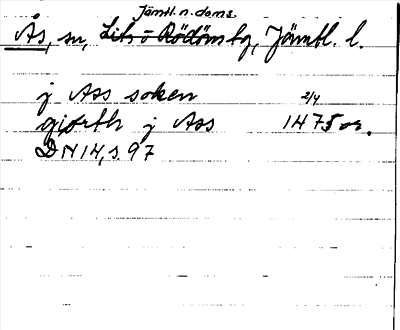 Jämtl. n. doms.
Ås, sn, Lits o Rödöns tg, Jämtl. l.
j Ass soken 2/4
giorth j Ass 1475 or.
DN 14, s. 97